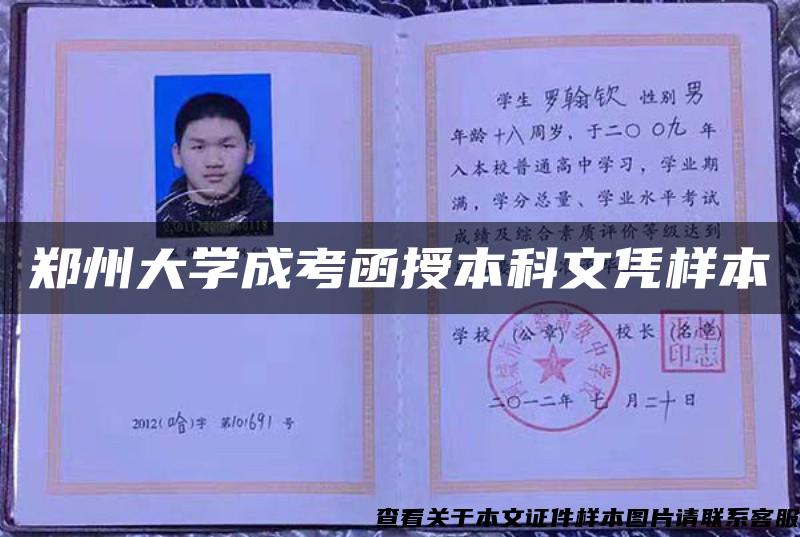 学生 罗翰钦 性别 男
年龄 十八 周岁，于二〇 〇九 年
入本校普通高中学习，学业期
满，学分总量、学业水平考试
成绩及综合素质评价等级达到
郑州大学成考函授本科文凭样本
学校 (公章) 校长 (名章)
高级中学校
印志
二〇一二年 七 月二十日
2012(哈)字 第101691 号
查看关于本文证件样本图片请联系客服